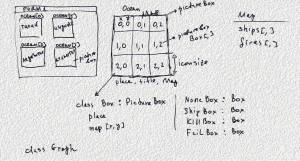 FORM 1
ocean[0] ocean[1]
ocean[2] ocean[3]
picture Box
Ocean
0,0 0,1 0,2
1,0 1,1 1,2
2,0 2,1 2,2
picture Box
picture Box
Box[,]
iconsize
place, title, Map
class Box : PictureBox
place
map [x,y]
class Graph
Map
ships[,]
fires[,]
NoneBox : Box
ShipBox : Box
KillBox : Box
FailBox : Box